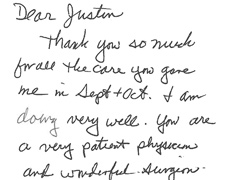 Dear Justin
Thank you so much
for all the care you gave
me in Sept + Oct. I am
doing very well. You are
a very patient physician
and wonderful surgeon.